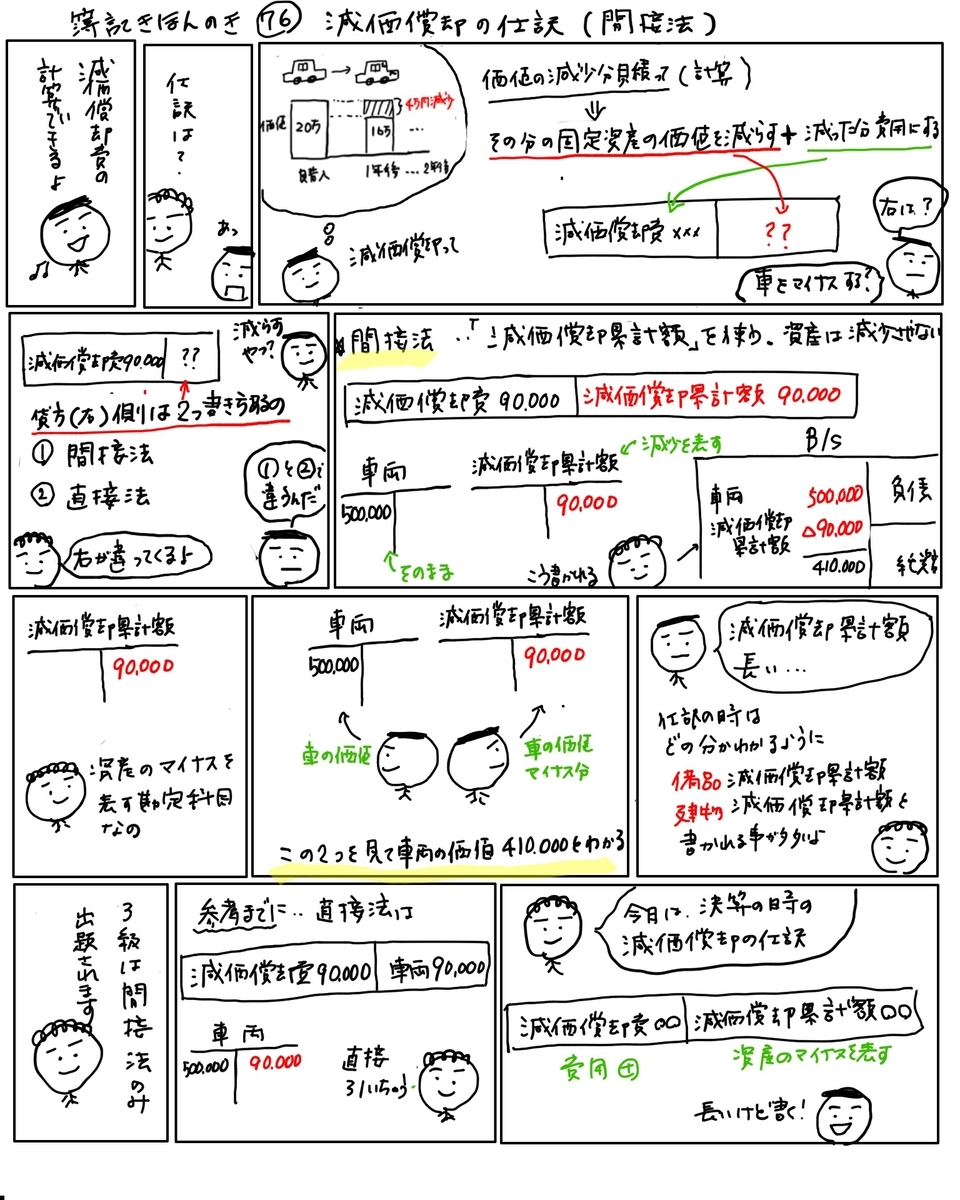 簿記きほんのき 76 減価償却の仕訳(間接法)
減価償却費の
計算できるよ
仕訳は?
あっ
価値
20万
16万
4万円減少
...
自普人
1年後 ... 2年後
減価償却って
価値の減少分見積って(計算)
その分の固定資産の価値を減らす + 減った分費用にする
減価償却費 xxx
??
右は?
車をマイナスする?
減価償却費90.000
??
減らす
やつ?
貸方(右)側は2つ書き方あるの
① 間接法
② 直接法
①と②で
違うんだ
右が違ってくるよ
間接法 ‥「減価償却累計額」を使い、資産は減少させない
減価償却費 90.000
減価償却累計額 90.000
車両
500,000
そのまま
減価償却累計額
90.000
減少を表す
こう書かれる
B/S
車両 500,000
減価償却
累計額
△90.000
410.000
負債
純資
減価償却累計額
90,000
資産のマイナスを
表す勘定科目
なの
車両
500,000
減価償却累計額
90,000
車の価値
車の価値
マイナス分
この2つを見て車両の価値 410.000とわかる
減価償却累計額
長い...
仕訳の時は
どの分かわかるように
備品減価償却累計額
建物減価償却累計額と
書かれる事が多いよ
3級は間接法のみ
出題されます
参考までに‥直接法は
減価償却費90.000
車両90,000
車両
500,000
90.000
直接
ひいちゃう
今日は、決算の時の
減価償却の仕訳
減価償却費〇〇
減価償却累計額〇〇
費用 ⊕
資産のマイナスを表す
長いけど書く!